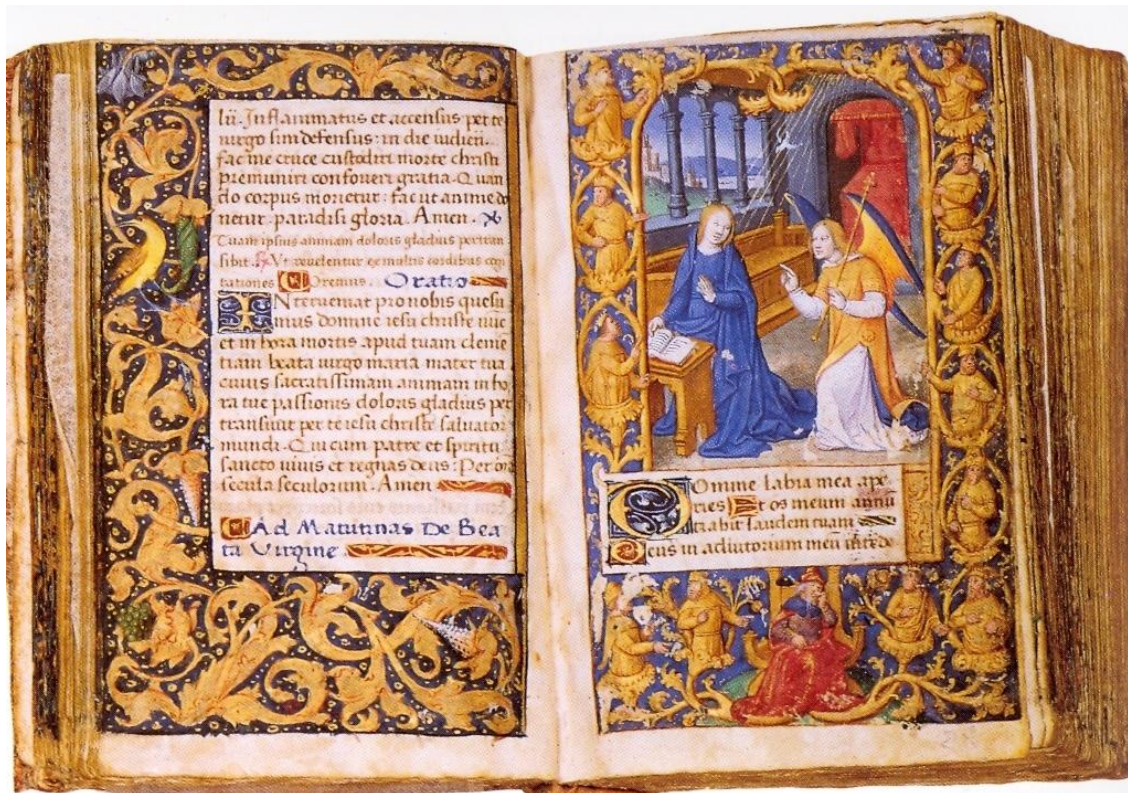 lii. Inflammatus et accensus per te
virgo sim defensus: in die iudicii.
fac me cruce custodiri morte christi
premuniri confoveri gratia. Quan
do corpus morietur: fac ut anime do
netur paradisi gloria. Amen. ꝟ
Tuam ipsius animam doloris gladius pertran
sibit. ℟ Ut revelentur ex multis cordibus cogi
tationes Oremus. Oratio
INterveniat pro nobis quesu
mus domine iesu christe nūc
et in hora mortis apud tuam cleme
tiam beata virgo maria mater tua
cuius sacratissimam animam in ho
ra tue passionis doloris gladius per
transivit per te iesu christe salvator
mundi. Qui cum patre et spiritu
sancto vivis et regnas deus: Per om
secula seculorum. Amen
Ad Matutinas De Bea
ta Virgine
DOmine labia mea ape
ries Et os meum annū
tiabit laudem tuam
Deus in adiutorium meū inte de